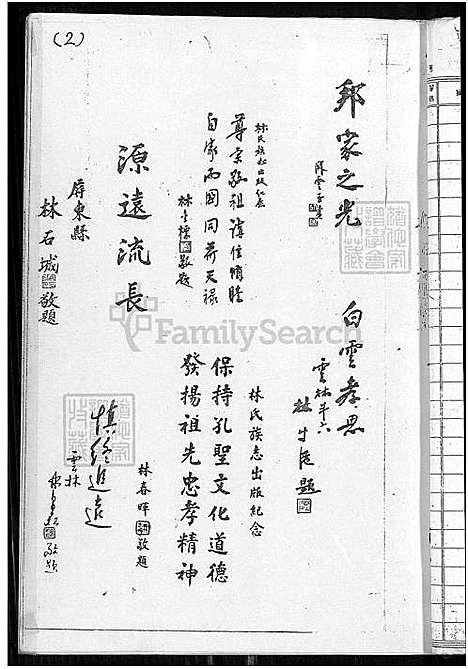 (2)
邦家之光
林氏族志出版紀念
尊宗敬祖講信惇睦
自家而國同荷天祿
敬題
源遠流長
屏東縣
林石城敬題
白雲孝思
雲林斗六
題
林氏族志出版紀念
保持孔聖文化道德
發揚祖先忠孝精神
林春暉敬題
慎終追遠
雲林
敬題
FamilySearch